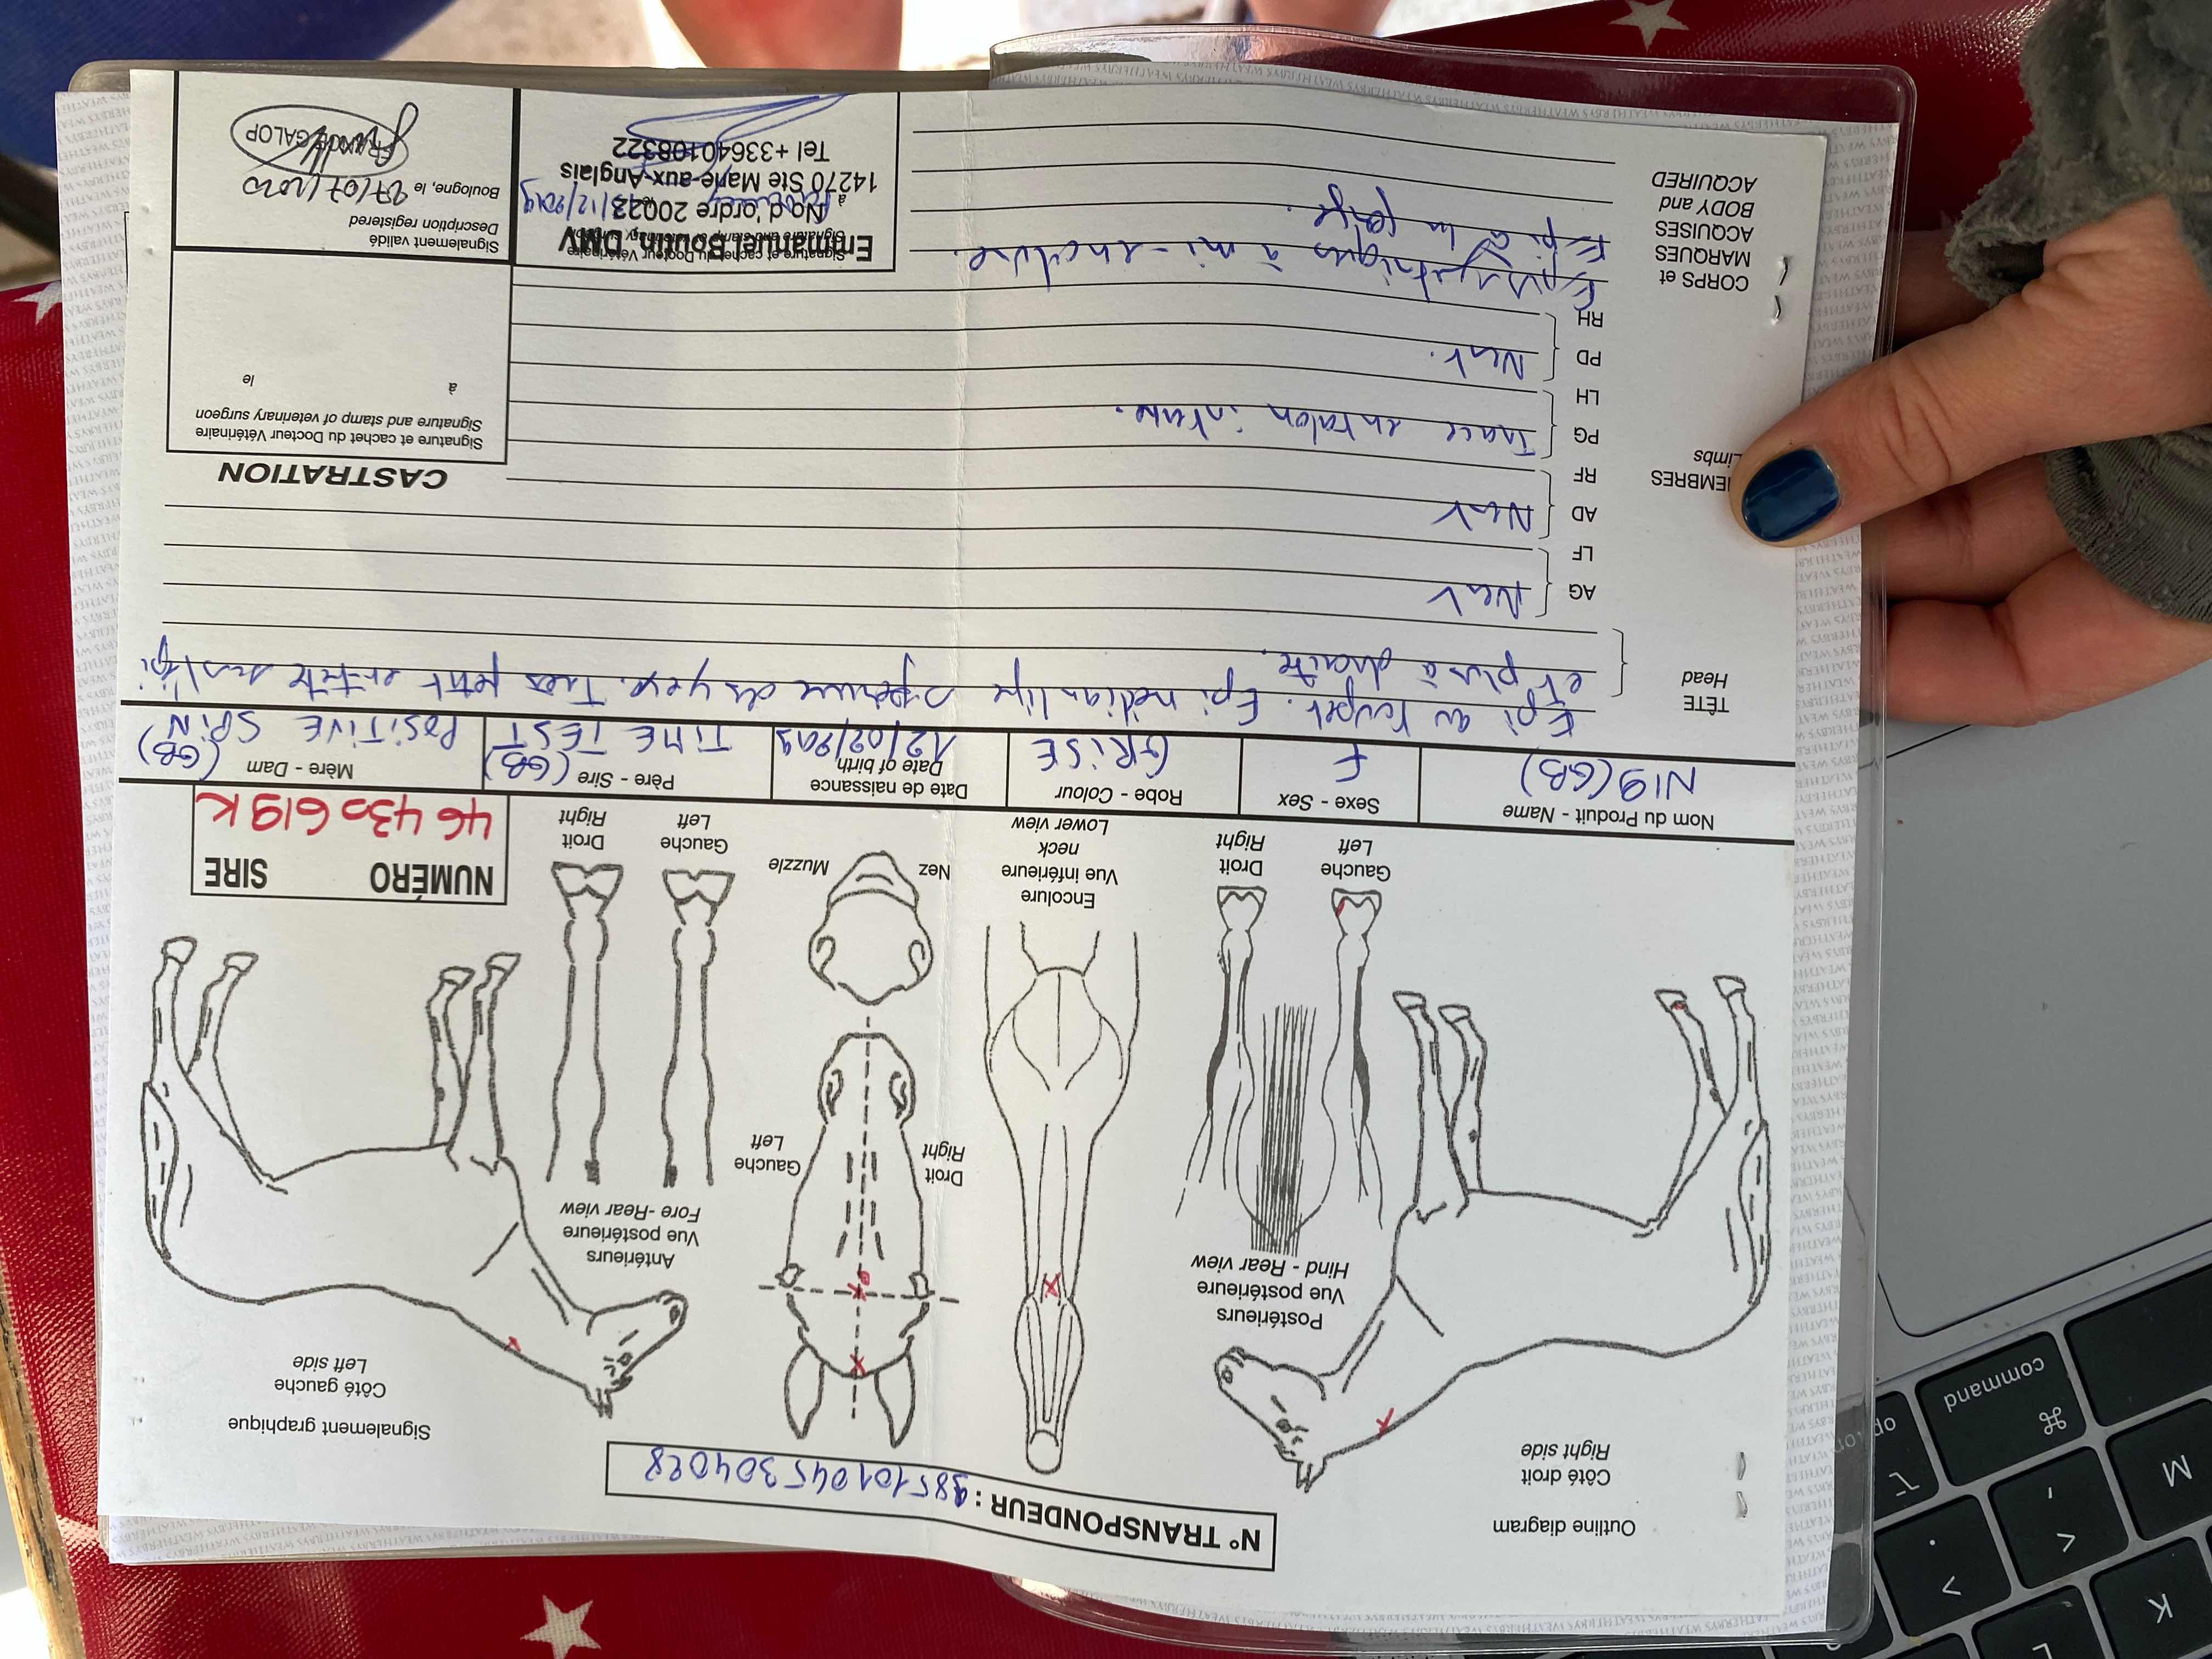 N° TRANSPONDEUR : 985101045304028
Outline diagram
Côté droit
Right side
Signalement graphique
Côté gauche
Left side
Postérieurs
Vue postérieure
Hind - Rear view
Gauche
Left
Droit
Right
Encolure
Vue inférieure
neck
Lower view
Droit
Right
Gauche
Left
Nez
Muzzle
Antérieurs
Vue postérieure
Fore -Rear view
Gauche
Left
Droit
Right
NUMÉRO SIRE
46 430 619 K
Nom du Produit - Name
N19 (GB)
Sexe - Sex
F
Robe - Colour
GRISE
Date de naissance
Date of birth
12/02/2019
Père - Sire (GB)
TIME TEST
Mère - Dam (GB)
POSITIVE SPIN
TÊTE
Head
Epi au toupet. Epi médian ligne supérieure des yeux. Très petit en-tête sous l'épi
et plus à droite.
MEMBRES
Limbs
AG
LF
Néant
AD
RF
Néant
PG
LH
Trace en talon interne.
PD
RH
Néant.
CASTRATION
Signature et cachet du Docteur Vétérinaire
Signature and stamp of veterinary surgeon
à le
CORPS et
MARQUES
ACQUISES
BODY and
ACQUIRED
Epis symétriques à mi-encolure.
Epi à la gorge.
Signature et cachet du Docteur Vétérinaire
Emmanuel Boutin, DMV
No d'ordre 20023
14270 Ste Marie-aux-Anglais
Tel +33640108322
à
/12/2019
Signalement validé
Description registered
Boulogne, le 27/07/2020
FRANCE GALOP
WEATHERBYS
command
⌘
⌥
M
K
L